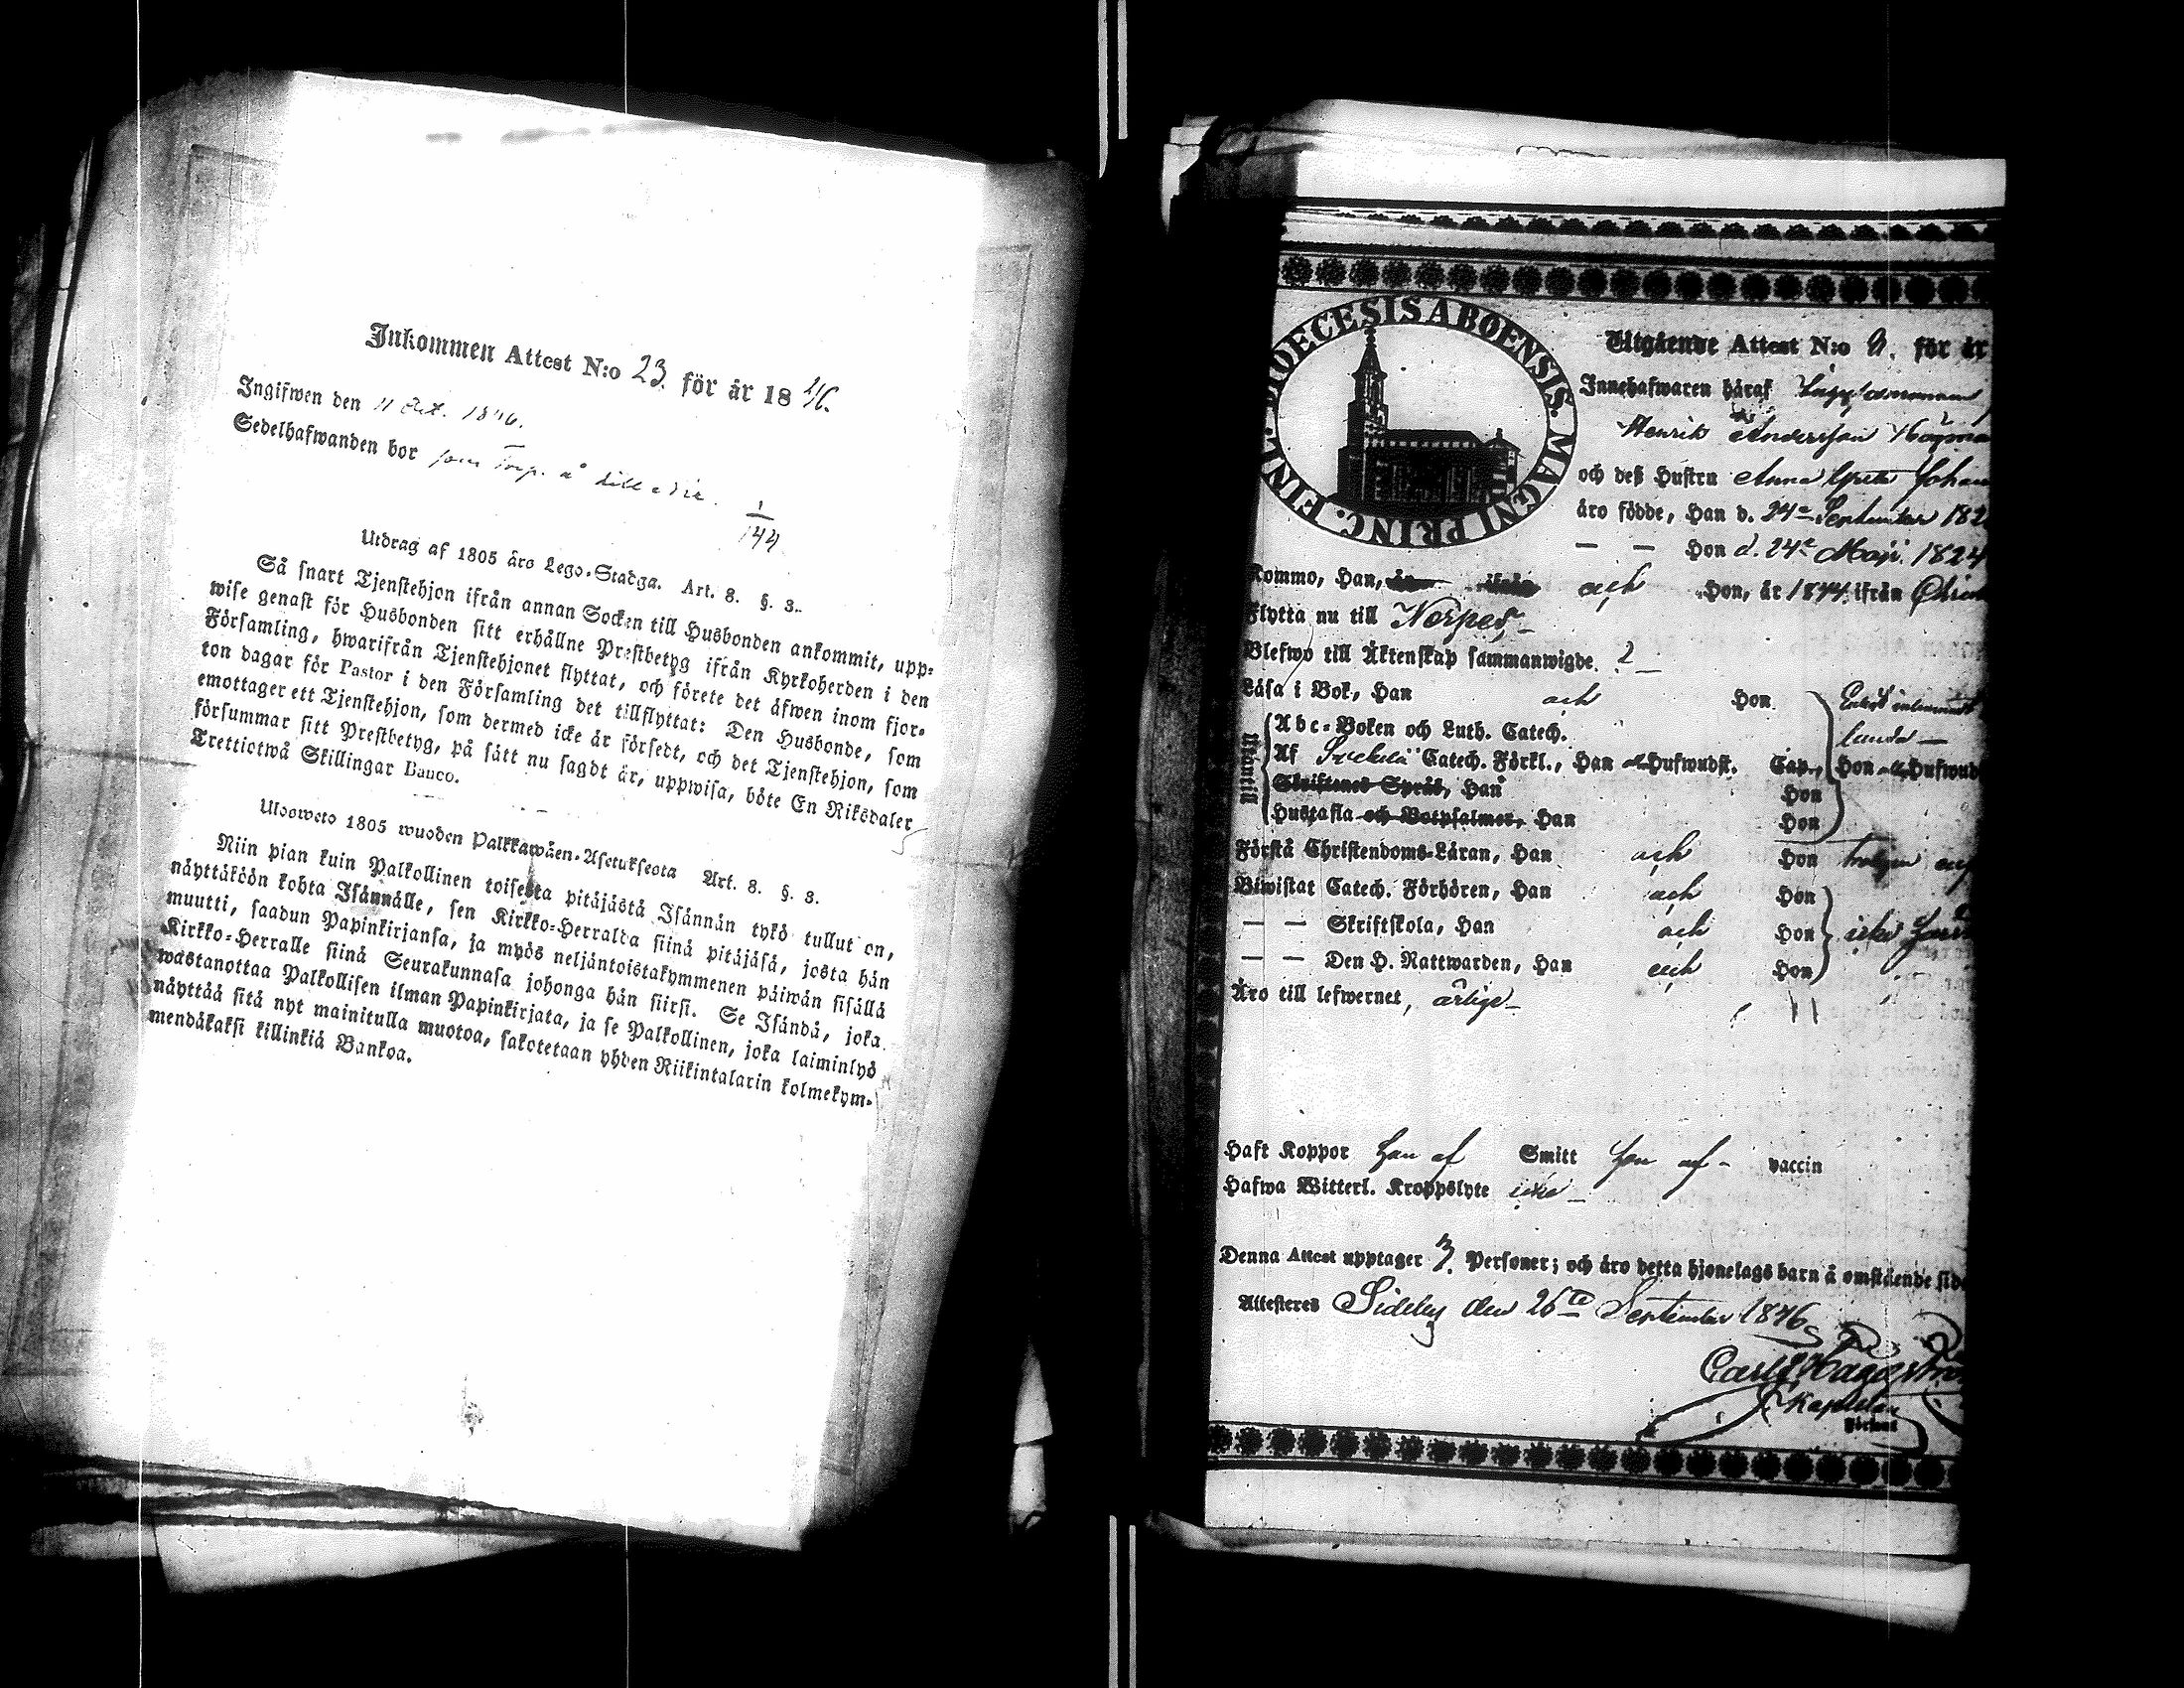 Inkommen Attest N:o 23. för år 1846.
Ingifwen den 11 Oct. 1846.
Sedelhafwanden bor som Torp. å
1/144
Utdrag af 1805 års Lego-Stadga. Art. 8. §. 3.
Så snart Tjenstehjon ifrån annan Socken till Husbonden ankommit, upp-
wise genast för Husbonden sitt erhållne Prestbetyg ifrån Kyrkoherden i den
Församling, hwarifrån Tjenstehjonet flyttat, och förete det äfwen inom fjor-
ton dagar för Pastor i den Församling det tillflyttat: Den Husbonde, som
emottager ett Tjenstehjon, som dermed icke är försedt, och det Tjenstehjon, som
försummar sitt Prestbetyg, på sätt nu sagdt är, uppwisa, böte En Riksdaler
Trettiotwå Skillingar Banco.
Ulosweto 1805 wuoden Palkkawäen-Asetuksesta Art. 8. §. 3.
Niin pian kuin Palkollinen toisesta pitäjästä Isännän tykö tullut on,
näyttäköön kohta Isännälle, sen Kirkko-Herralda siinä pitäjäsä, josta hän
muutti, saadun Papinkirjansa, ja myös neljäntoistakymmenen päiwän sisällä
Kirkko-Herralle siinä Seurakunnasa johonga hän siirsi. Se Isändä, joka
wastanottaa Palkollisen ilman Papinkirjata, ja se Palkollinen, joka laiminlyö
näyttää sitä nyt mainitulla muotoa, sakotetaan yhden Riikintalarin kolmekym-
mendäkaksi killinkiä Bankoa.
DIOECESIS ABOENSIS. MAGNI PRINC. FINL.
Utgående Attest N:o 9. för år
Innehafwaren häraf
Henrik Andersson
och deß Hustru Anna Greta Johan
äro födde, Han d. 24de September 182
— — Hon d. 24de Maji. 1824
Kommo, Han, år ifrån och Hon, år 1844 ifrån Chris
Flytta nu till Nerpes,
Blefwo till Äktenskap sammanwigde
Läsa i Bok, Han och Hon
Utantill
Abc-Boken och Luth. Catech.
Af Svebelii Catech. Förkl., Han Hufwudst. Cap., Hon Hufwud
Skriftenes Språk, Han Hon
Hustafla och Botpsalmer, Han Hon
Förstå Christendoms-Läran, Han och Hon
Biwistat Catech. Förhören, Han och Hon
— — Skriftskola, Han och Hon
— — Den H. Nattwarden, Han och Hon
Äro till lefwernet, ärlige
Haft Koppor Han af Smitt Hon af vaccin
Hafwa Witterl. Kroppslyte icke
Denna Attest upptager 3. Personer; och äro detta hjonelags barn å omstående sida
Attesteres Sideby den 26te September 1846
Carl Haggström
Kapellan